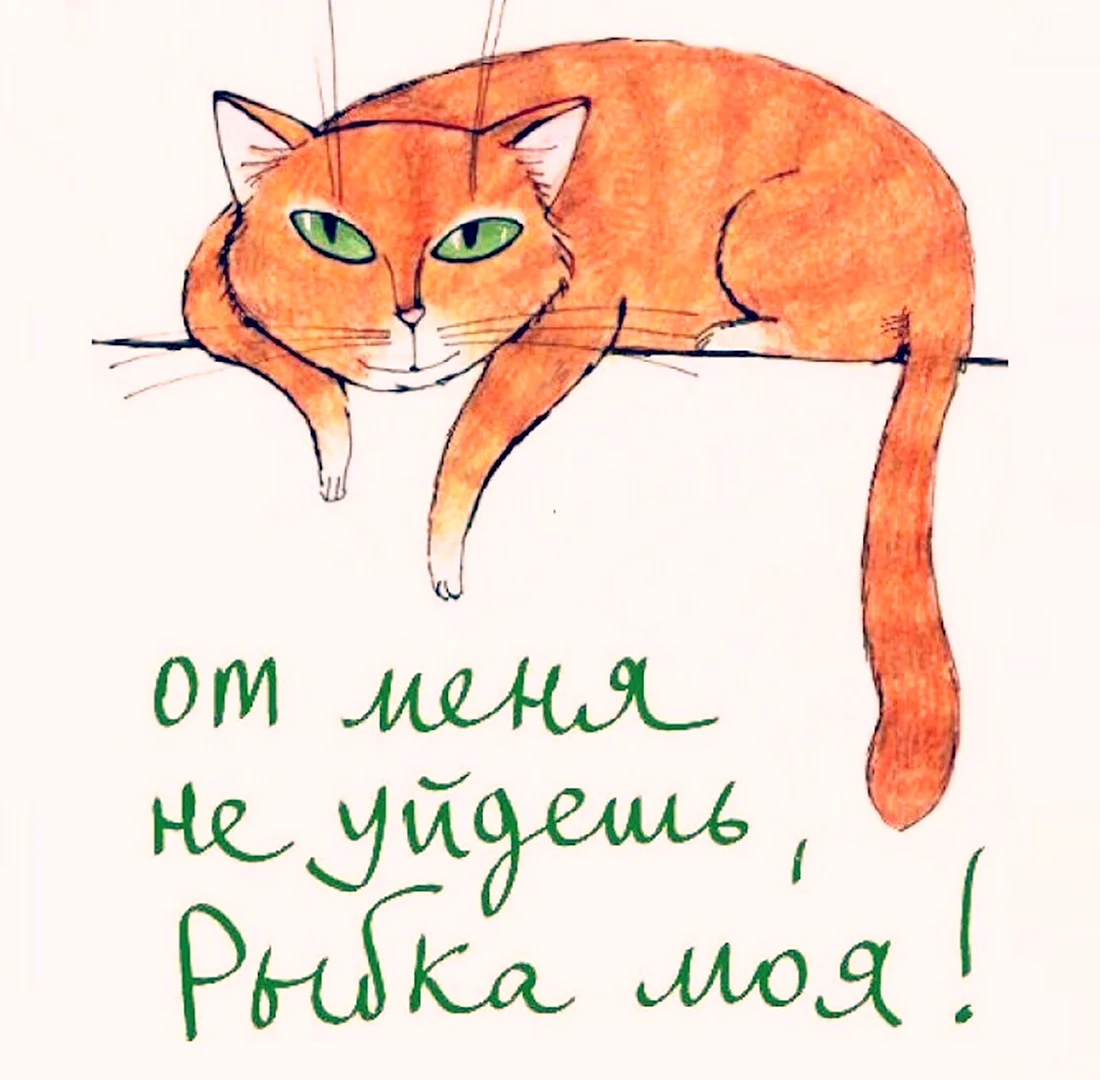 от меня
не уйдешь,
Рыбка моя!